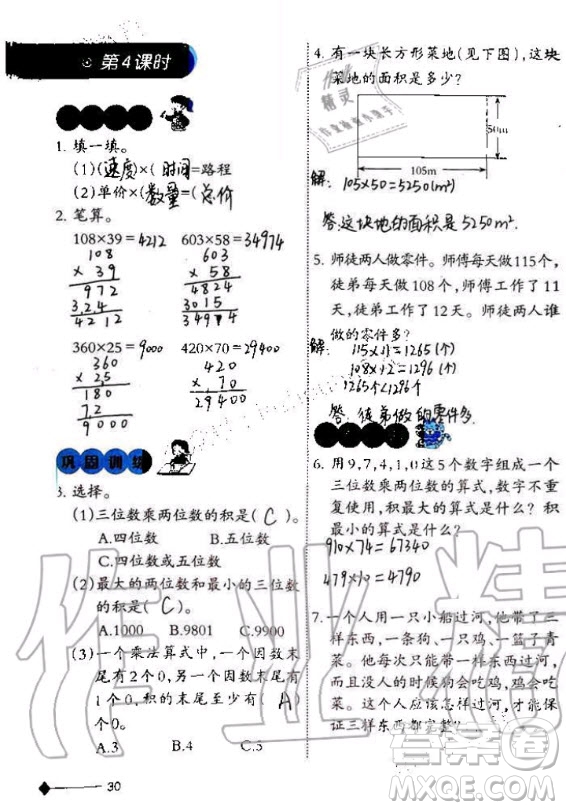 第4课时
1. 填一填。
(1)(速度)×(时间)=路程
(2)单价×(数量)=(总价)
2. 笔算。
108×39=4212 603×58=34974
108
× 39
972
3 2 4
4212
603
× 58
4824
3015
34974
360×25=9000 420×70=29400
360
× 25
180
72
9000
420
× 70
29400
巩固训练
3. 选择。
(1)三位数乘两位数的积是( C )。
A.四位数 B.五位数
C.四位数或五位数
(2)最大的两位数和最小的三位数
的积是( C )。
A.1000 B.9801 C.9900
(3)一个乘法算式中,一个因数末
尾有2个0,另一个因数末尾有
1个0,积的末尾至少有( A )
个0。
A.3 B.4 C.5
30
4. 有一块长方形菜地(见下图),这块
菜地的面积是多少?
50m
105m
解: 105×50=5250(m²)
答:这块地的面积是5250m².
5. 师徒两人做零件。师傅每天做115个,
徒弟每天做108个,师傅工作了11
天,徒弟工作了12天。师徒两人谁
做的零件多?
解: 115×11=1265(个)
108×12=1296(个)
1265个<1296个
答:徒弟做的零件多.
6. 用9,7,4,1,0这5个数字组成一个
三位数乘两位数的算式,数字不重
复使用,积最大的算式是什么?积
最小的算式是什么?
910×74=67340
479×10=4790
7. 一个人用一只小船过河,他带了三
样东西,一条狗、一只鸡,一篮青
菜。他每次只能带一样东西过河,
而且没人的时候狗会吃鸡,鸡会吃
菜。这个人应该怎样过河,才能保
证三样东西都完整?
作业精
答案卷
MXQE.COM